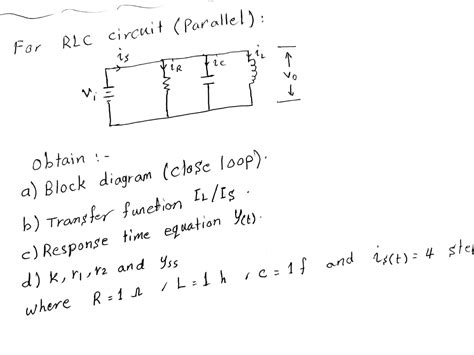 For RLC circuit (Parallel):
is
iR
ic
iL
Vi
Vo
obtain :-
a) Block diagram (close loop).
b) Transfer function IL/Is.
c) Response time equation y(t).
d) k, r1, r2 and yss
where R=1 Ω , L=1 h , c=1f and is(t)=4 ste